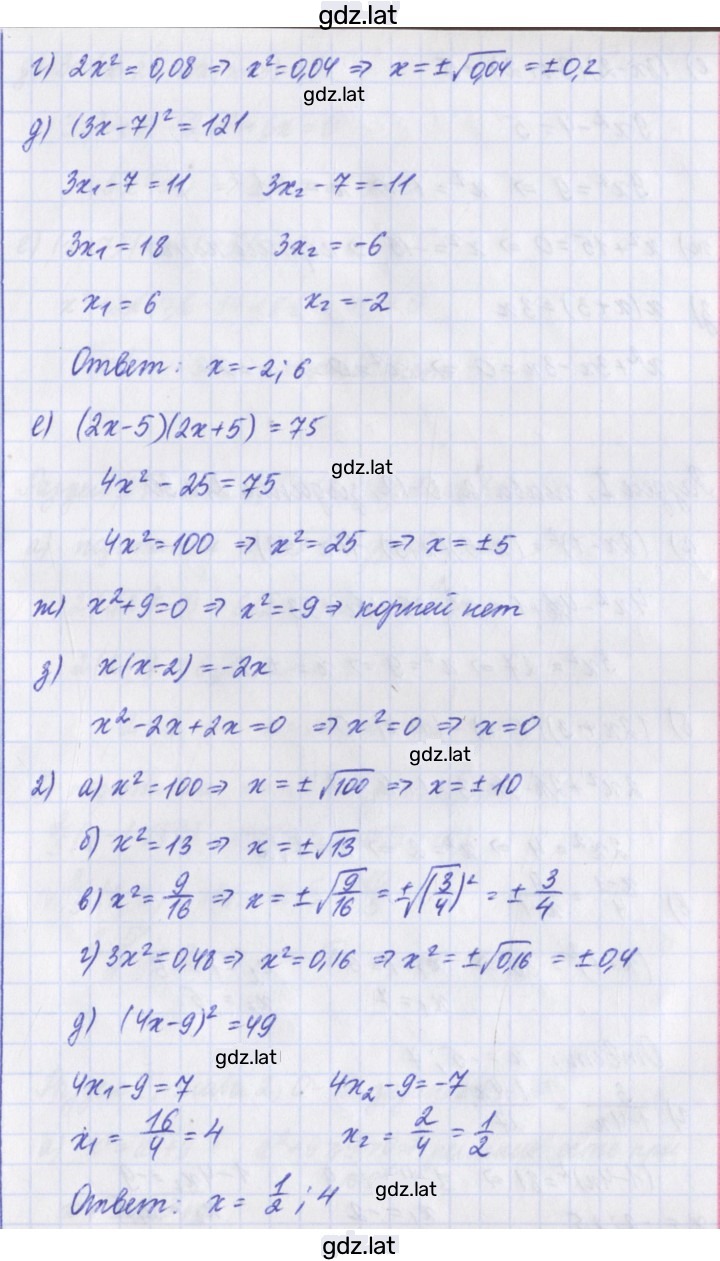 gdz.lat
г) 2x² = 0,08 ⇒ x² = 0,04 ⇒ x = ±√0,04 = ±0,2
gdz.lat
д) (3x-7)² = 121
3x₁-7 = 11 3x₂-7 = -11
3x₁ = 18 3x₂ = -6
x₁ = 6 x₂ = -2
Ответ: x = -2; 6
е) (2x-5)(2x+5) = 75
gdz.lat
4x² - 25 = 75
4x² = 100 ⇒ x² = 25 ⇒ x = ±5
ж) x²+9=0 ⇒ x² = -9 ⇒ корней нет
з) x(x-2) = -2x
x²-2x+2x=0 ⇒ x²=0 ⇒ x=0
gdz.lat
2) а) x² = 100 ⇒ x = ±√100 ⇒ x = ±10
б) x² = 13 ⇒ x = ±√13
в) x² = 9/16 ⇒ x = ±√(9/16) = ±√(3/4)² = ±3/4
г) 3x² = 0,48 ⇒ x² = 0,16 ⇒ x² = ±√0,16 = ±0,4
д) (4x-9)² = 49
gdz.lat
4x₁-9 = 7 4x₂-9 = -7
x₁ = 16/4 = 4 x₂ = 2/4 = 1/2
Ответ: x = 1/2; 4
gdz.lat
gdz.lat